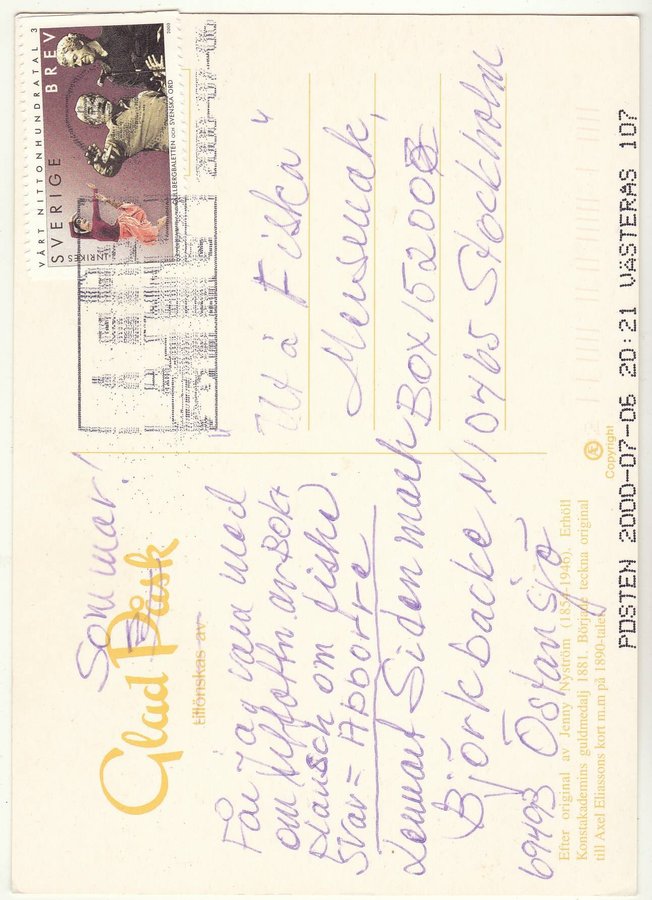 VÅRT NITTONHUNDRATAL 3
SVERIGE BREV
INRIKES
CULLBERGBALETTEN OCH SVENSKA ORD
2000
Sommar!
Glad Påsk
tillönskas av
Får Jag vara med
om av Bok+
Plansch om fiske.
Svar = Abborre
Lennart Sidenmark
Björkbacke
69493 Östansjö
"Allt à Fiska"
BOX 152008
10465 Stockholm
Efter original av Jenny Nyström (1854-1946). Erhöll
Konstakademins guldmedalj 1881. Började teckna original
till Axel Eliassons kort m.m på 1890-talet.
Æ
Copyright
POSTEN 2000-07-06 20:21 VÄSTERÅS 107